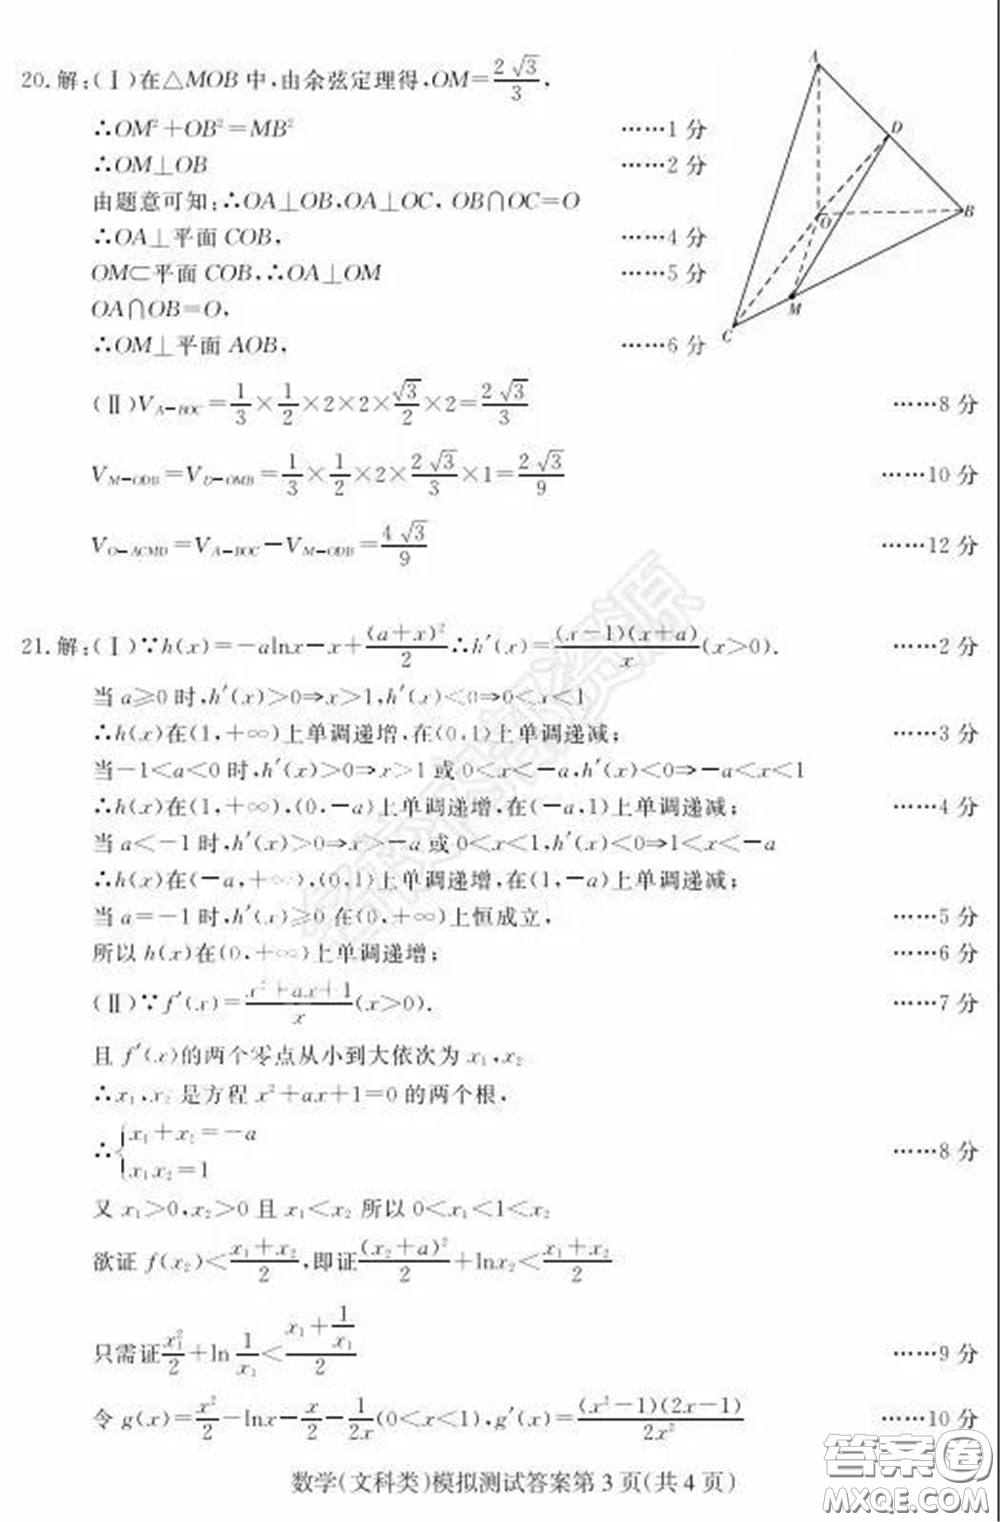 20.解:(Ⅰ)在△MOB中,由余弦定理得,OM=2√3/3,
∴OM²+OB²=MB² ……1分
∴OM⊥OB ……2分
由题意可知:∴OA⊥OB,OA⊥OC, OB∩OC=O
∴OA⊥平面COB, ……4分
OM⊂平面COB,∴OA⊥OM ……5分
OA∩OB=O,
∴OM⊥平面AOB, ……6分
A
D
O
B
M
C
(Ⅱ)V_{A-BOC}=1/3×1/2×2×2×√3/2×2=2√3/3 ……8分
V_{M-ODB}=V_{D-OMB}=1/3×1/2×2×2√3/3×1=2√3/9 ……10分
V_{O-ACMD}=V_{A-BOC}-V_{M-ODB}=4√3/9 ……12分
21.解:(Ⅰ)∵h(x)=-alnx-x+(a+x)²/2∴h′(x)=(x-1)(x+a)/x(x>0). ……2分
当a≥0时,h′(x)>0⇒x>1,h′(x)<0⇒0<x<1
∴h(x)在(1,+∞)上单调递增,在(0,1)上单调递减; ……3分
当-1<a<0时,h′(x)>0⇒x>1或0<x<-a,h′(x)<0⇒-a<x<1
∴h(x)在(1,+∞),(0,-a)上单调递增,在(-a,1)上单调递减; ……4分
当a<-1时,h′(x)>0⇒x>-a或0<x<1,h′(x)<0⇒1<x<-a
∴h(x)在(-a,+∞),(0,1)上单调递增,在(1,-a)上单调递减;
当a=-1时,h′(x)≥0在(0,+∞)上恒成立, ……5分
所以h(x)在(0,+∞)上单调递增; ……6分
(Ⅱ)∵f′(x)=x²+ax+1/x(x>0). ……7分
且f′(x)的两个零点从小到大依次为x₁,x₂
∴x₁,x₂是方程x²+ax+1=0的两个根,
∴{x₁+x₂=-a
x₁x₂=1 ……8分
又x₁>0,x₂>0且x₁<x₂所以0<x₁<1<x₂
欲证f(x₂)<x₁+x₂/2,即证(x₂+a)²/2+lnx₂<x₁+x₂/2
只需证x₁²/2+ln1/x₁<(x₁+1/x₁)/2 ……9分
令g(x)=x²/2-lnx-x/2-1/2x(0<x<1),g′(x)=(x²-1)(2x-1)/2x² ……10分
数学(文科类)模拟测试答案第3页(共4页)
答案圈
MXQE.COM